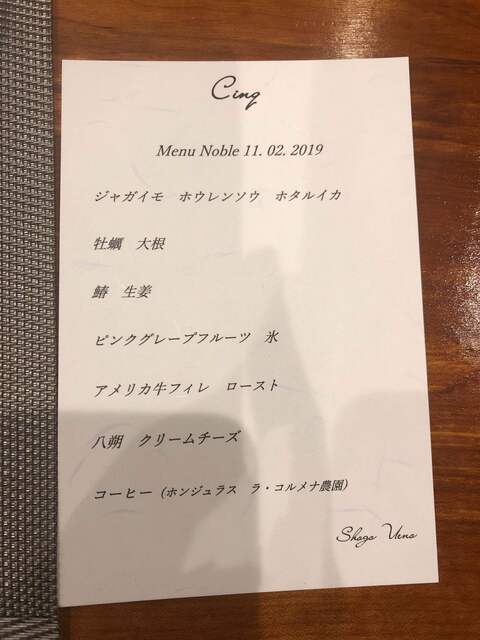 Cinq
Menu Noble 11. 02. 2019
ジャガイモ　ホウレンソウ　ホタルイカ
牡蠣　大根
鰆　生姜
ピンクグレープフルーツ　氷
アメリカ牛フィレ　ロースト
八朔　クリームチーズ
コーヒー (ホンジュラス　ラ・コルメナ農園)
Shogo Ueno